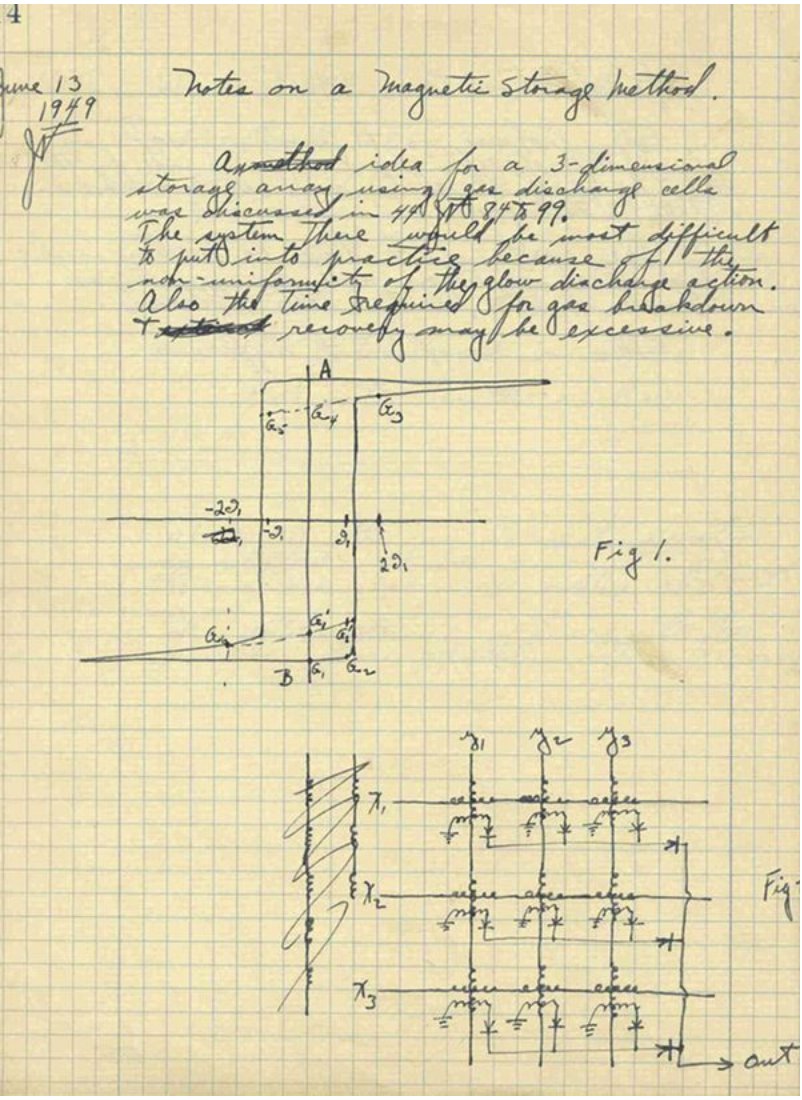 4
June 13
1949
JWF
Notes on a Magnetic Storage Method.
A method idea for a 3-dimensional
storage array using gas discharge cells
was discussed in 44 JWF 84 to 99.
The system there would be most difficult
to put into practice because of the
non-uniformity of the glow discharge action.
Also the time required for gas breakdown
+ recovery may be excessive.
A
G5 G4 G3
-2I1
-I1 I1
2I1
Fig 1.
G1' G1'
B G1 G2
y1 y2 y3
X1
X2
Fig
X3
out